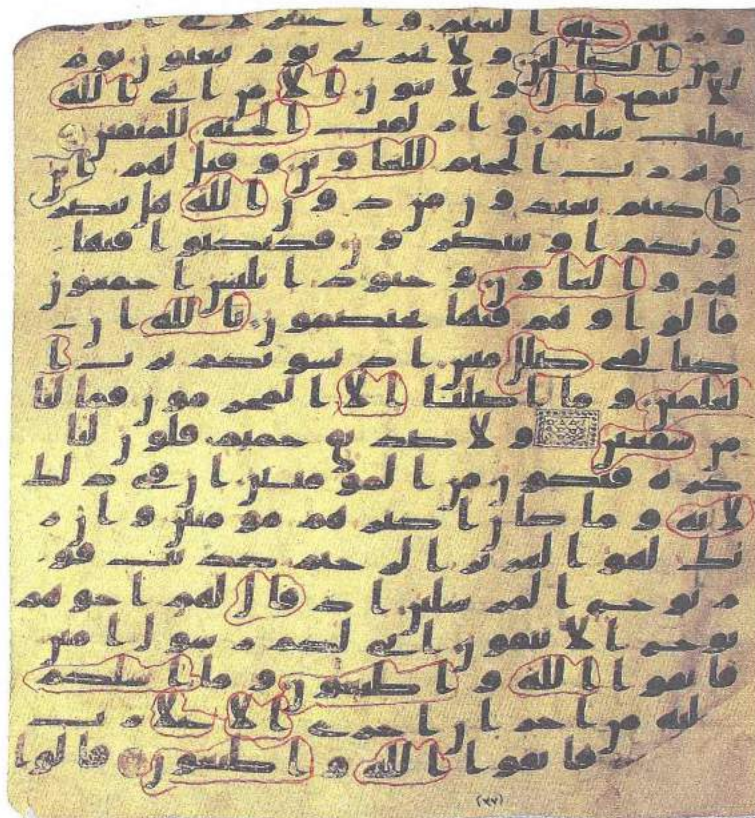 ورثة جنة النعيم واغفر لابي انه كا
ن من الضالين ولا تخزني يوم يبعثون يوم
لا ينفع مال ولا بنون الا من اتى الله
بقلب سليم وازلفت الجنة للمتقين
وبرزت الجحيم للغاوين وقيل لهم اين
ما كنتم تعبدون من دون الله هل ينصر
ونكم او ينتصرون فكبكبوا فيها
هم والغاون وجنود ابليس اجمعون
قالوا وهم فيها يختصمون تالله ان
كنا لفي ضلل مبين اذ نسويكم برب ا
لعلمين وما اضلنا الا المجرمون فما لنا
من شفعين ولا صديق حميم فلو ان لنا
كرة فنكون من المؤمنين ان في ذلك
لاية وما كان اكثرهم مومنين وان ر
بك لهو العزيز الرحيم كذبت قو
م نوح المرسلين اذ قال لهم اخوهم
نوح الا تتقون اني لكم رسول امين
فاتقوا الله واطيعون وما اسلكم
عليه من اجر ان اجري الا علا رب
فاتقوا الله واطيعون قالوا
(٧٧)